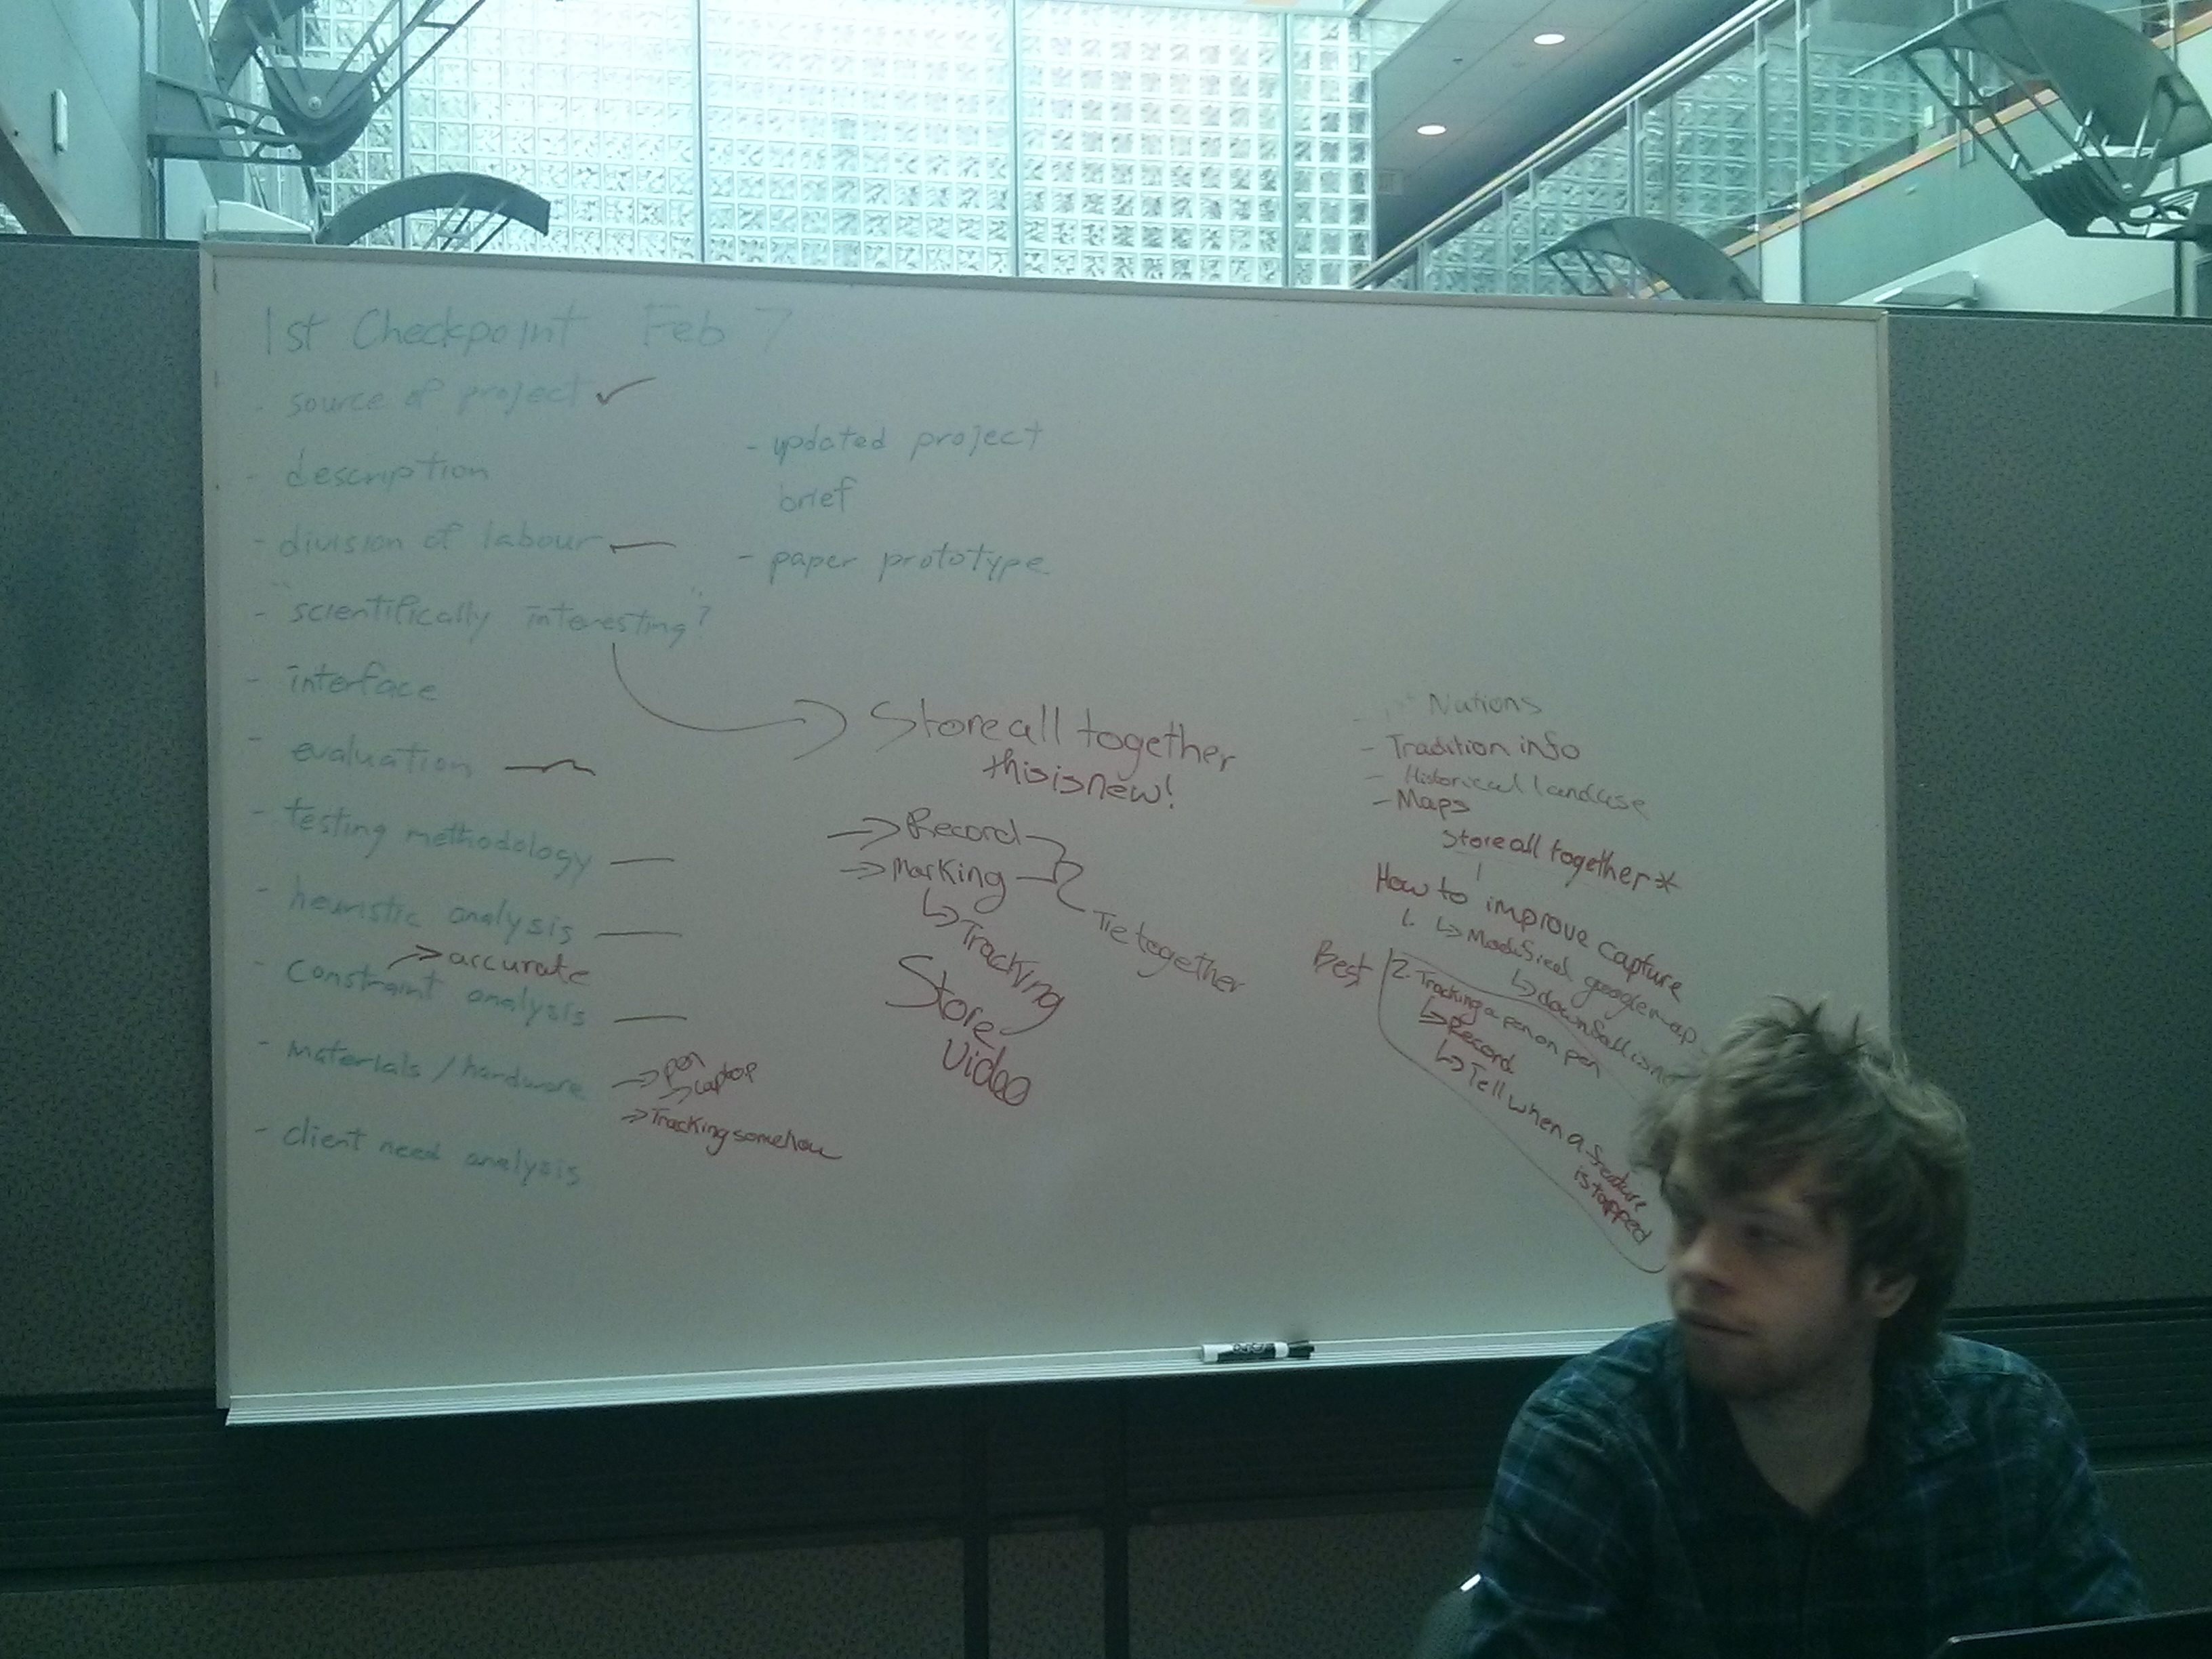 1st Checkpoint Feb 7
- source of project ✓
- description
- division of labour —
- "scientifically interesting"?
- interface
- evaluation —
- testing methodology —
- heuristic analysis —
→ accurate
- constraint analysis —
- materials / hardware → pen
→ laptop
→ Tracking somehow
- client need analysis
- updated project
brief
- paper prototype
Store all together
this is new!
→ Record
→ Marking
↳ Tracking
Tie together
Store
video
Nations
- Tradition info
- Historical landuse
- Maps
Store all together *
How to improve capture
1. ↳ Modified google map
↳ downfall is
Best 2. Tracking a pen on pen
↳ Record
↳ Tell when a feature
is tapped
EXPO